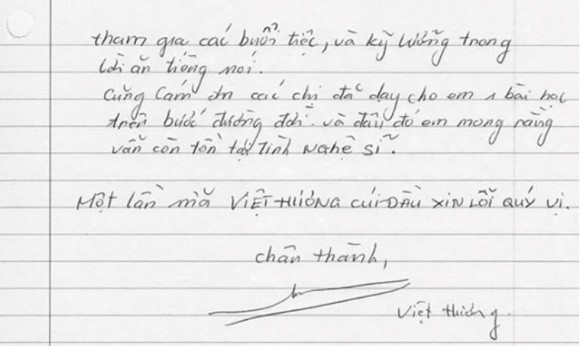 tham gia các buổi tiệc, và kỹ lưỡng trong
lời ăn tiếng nói.
Cũng cám ơn các chị đã dạy cho em 1 bài học
trên bước đường đời. và đâu đó em mong rằng
vẫn còn tồn tại Tình Nghệ sĩ.
Một lần nữa VIỆT HƯƠNG CÚI ĐẦU XIN LỖI QUÝ VỊ.
chân thành,
Việt Hương